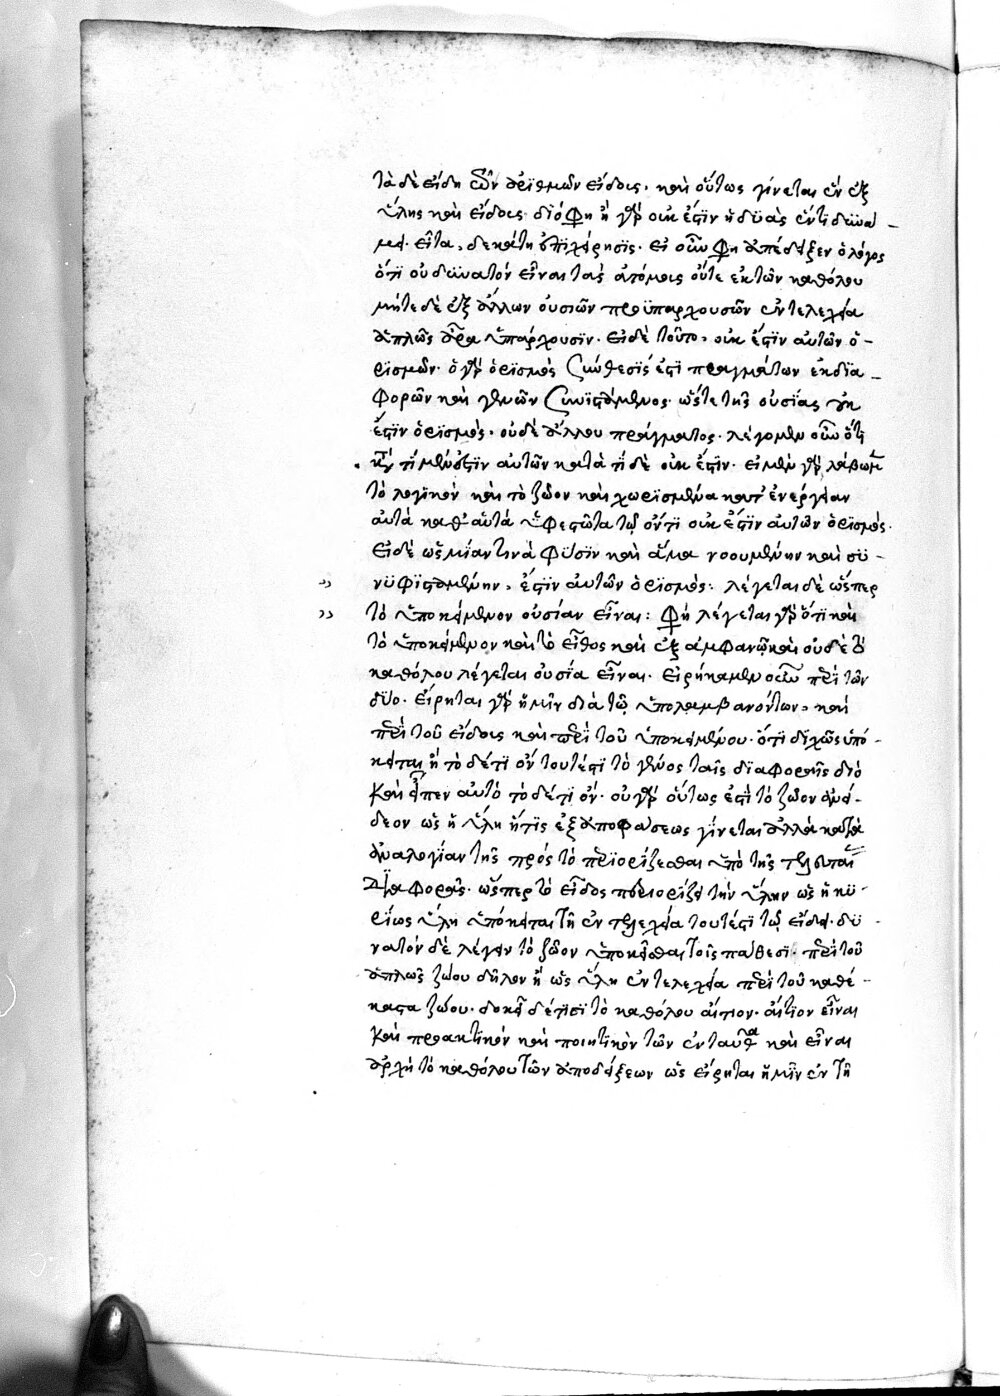 τὰ δὲ εἴδη τῶν ἀριθμῶν εἴδους. καὶ οὕτως γίνεται ἓν ἐξ
ὕλης καὶ εἴδους. διό φη ἢ γὰρ οὐκ ἔστϊν ἡ δϋὰς ἕν τι δεϋνά-
μει. εἶτα, δεκάτη ἐπϊχείρησϊς. εἰ οὖν φη ἀπέδειξεν ὁ λόγος
ὅτϊ οὐ δυνατὸν εἶναι ταῖς ἀτόμοις οὔτε ἐκ τῶν καθόλου
μήτε δὲ ἐξ ἄλλων οὐσιῶν προϋπαρχουσῶν ἐντελεχεία
ἁπλῶς ἄρα ὑπάρχουσϊν. εἰ δὲ τοῦτο, οὐκ ἔστϊν αὐτῶν ὁ-
ρϊσμῶν. ὁ γὰρ ὁρϊσμὸς σύνθεσΐς ἐστι πραγμάτων ἐκ δϊα-
φορῶν καὶ γενῶν συνϊστάμενος. ὥστε τῆς οὐσίας οὐκ
ἔστϊν ὁρϊσμός. οὐδὲ ἄλλου πράγματος. λέγομεν οὖν ὅτι
τι μέν ἐστϊν αὐτῶν κατά τϊ δὲ οὐκ ἔστϊν. εἰ μὲν γὰρ λάβωμεν
τὸ λογϊκὸν καὶ τὸ ζῶον καὶ χωρϊσμένα κατ' ἐνέργειαν
αὐτὰ καθ' αὑτὰ ὑφεστῶτα τῷ ὄντϊ οὐκ ἔστϊν αὐτῶν ὁρϊσμός.
εἰ δὲ ὡς μίαν τινὰ φύσϊν καὶ ἅμα νοουμένην καὶ σϋ-
νϋφϊσταμένην, ἔστϊν αὐτῶν ὁρϊσμός. λέγεται δὲ ὥσπερ
τὸ ὑποκείμενον οὐσίαν εἶναι: φη λέγεται γὰρ ὅτϊ καὶ
τὸ ὑποκείμενον καὶ τὸ εἶδος καὶ ἐξ ἀμφοῖν καὶ οὐδὲ τὸ
καθόλου λέγεται οὐσία εἶναι. εἰρήκαμεν οὖν περὶ τῶν
δύο. εἴρηται γὰρ ἡμῖν διὰ τῶν ὑπολαμβανόντων, καὶ
περὶ τοῦ εἴδους καὶ περὶ τοῦ ὑποκειμένου. ὅτι δϊχῶς ὑπό-
κειται ἢ τὸ δέ τϊ ὂν τουτέστι τὸ γένος ταῖς δϊαφοραῖς διὸ
καὶ εἶπεν αὐτὸ τὸ δέ τϊ ὄν. οὐ γὰρ οὕτως ἐστὶ τὸ ζῶον ἀνεί-
δεον ὡς ἡ ὕλη ἥτϊς ἐξ ἀποφάσεως γΐνεται ἀλλὰ κατὰ
ἀναλογΐαν τῆς πρὸς τὸ περϊορΐζεσθαι ὑπὸ τῆς τελευταί
δϊαφορᾶς. ὥσπερ τὸ εἶδος περιορίζει τὴν ὕλην ὡς ἡ κϋ-
ρΐως ὕλη ὑπόκειται τῇ ἐντελεχεία τουτέστϊ τῷ εἴδει. δϋ-
νατὸν δὲ λέγειν τὸ ζῶον ὑποκεῖσθαι τοῖς πάθεσϊ. περὶ τοῦ
ἁπλῶς ζώου δῆλον ἢ ὡς ὕλη ἐντελεχεία περὶ τοῦ καθέ-
καστα ζώου. δοκεῖ δέ τϊσϊ τὸ καθόλου αἴτιον. αἴτϊον εἶναι
καὶ πρακτικὸν καὶ ποιητϊκὸν τῶν ἐνταῦθα καὶ εἶναι
ἀρχὴ τὸ καθόλου τῶν ἀποδείξεων ὡς εἴρηται ἡμῖν ἐν τῇ